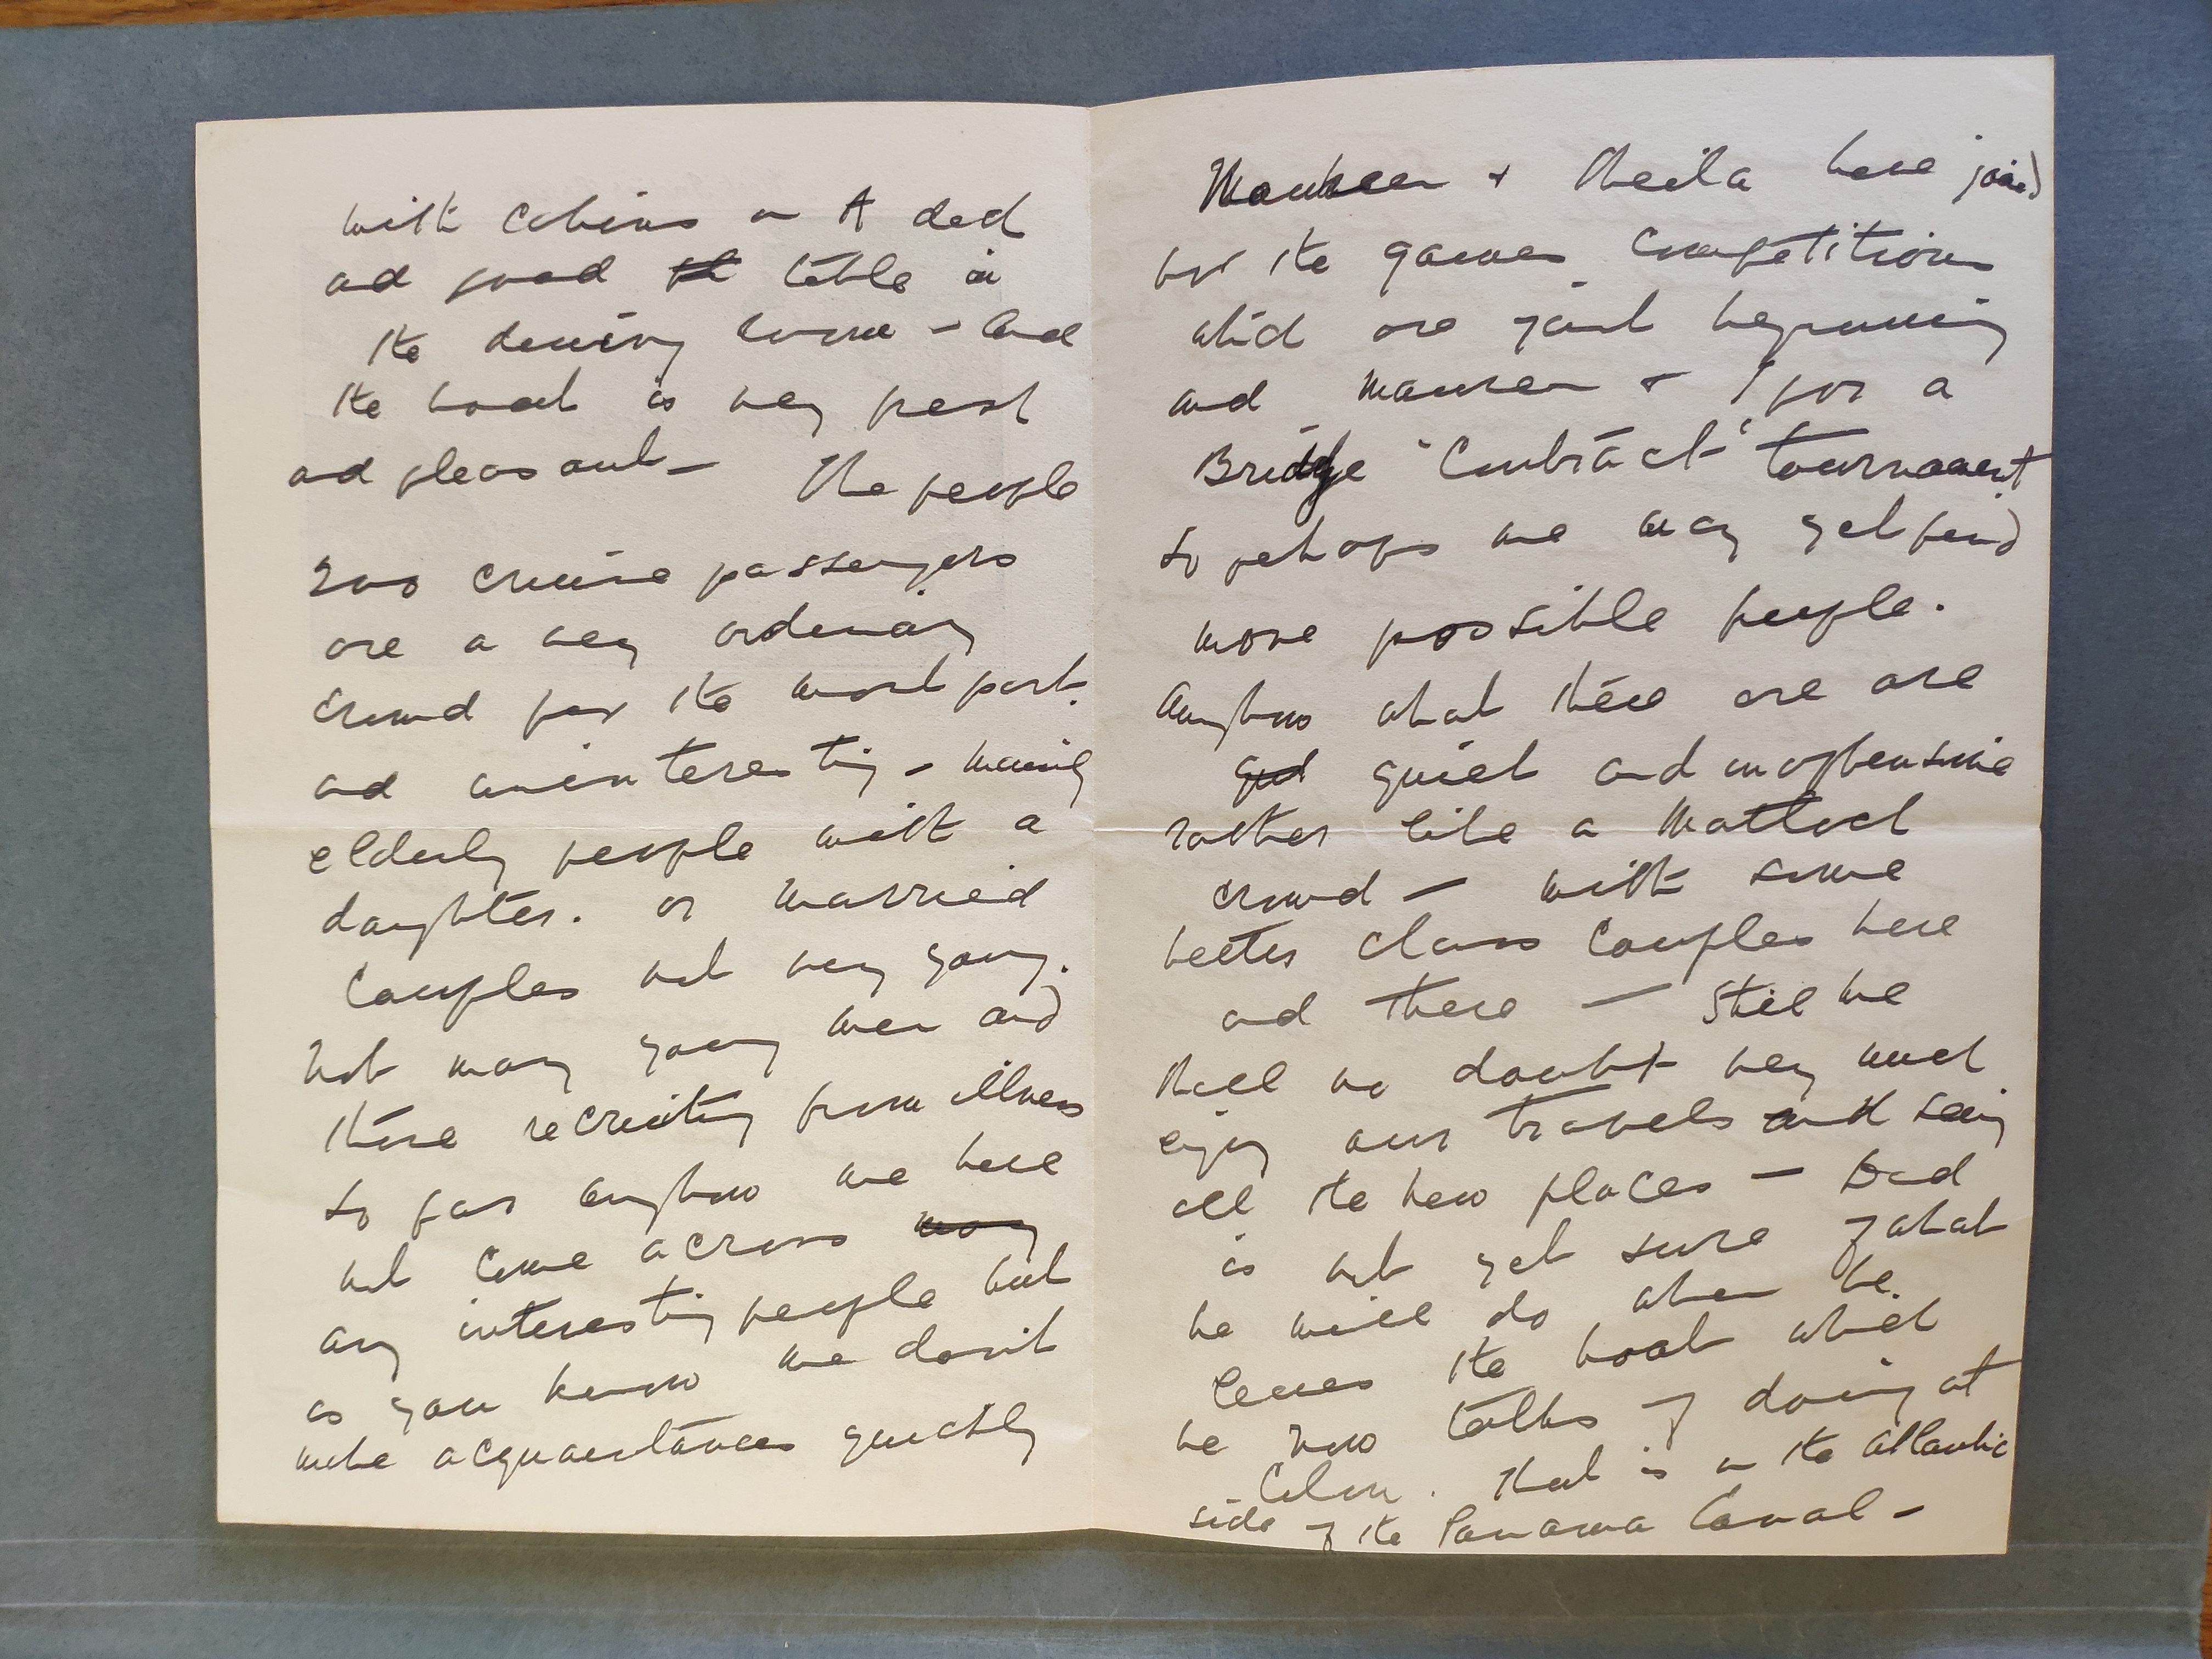 with cabins on A deck
and good table in
the dining room - and
the boat is very
and pleasant - The people
200 cruise passengers
are a very ordinary
crowd for the most part.
and uninteresting - mainly
elderly people with a
daughter. or married
couples not very young.
Not many young men and
those recruiting from illness
so far anyhow we have
not come across many
any interesting people but
as you know we don't
make acquaintances quickly
Maureen + Sheila have joined
for the games competitions
which are just beginning
and Maureen + I for a
Bridge 'Contract' tournament
so perhaps we may yet find
more possible people.
Anyhow what there are are
quiet and inoffensive
rather like a Matlock
crowd - with some
better class couples here
and there - Still we
shall no doubt very much
enjoy our travels and seeing
all the new places - Dad
is not yet sure of what
he will do when he
leaves the boat which
he now talks of doing at
Colon. that is on the Atlantic
side of the Panama Canal -